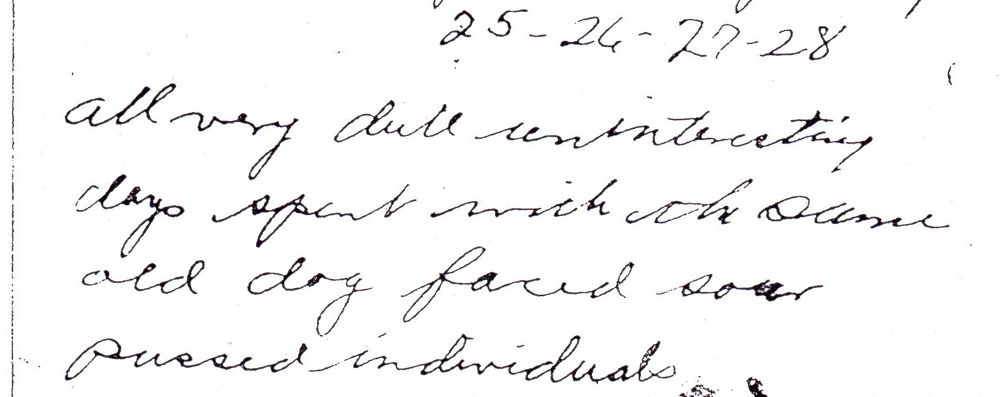 25-26-27-28
all very dull uninteresting
days spent with the same
old dog faced sour
pussed individuals